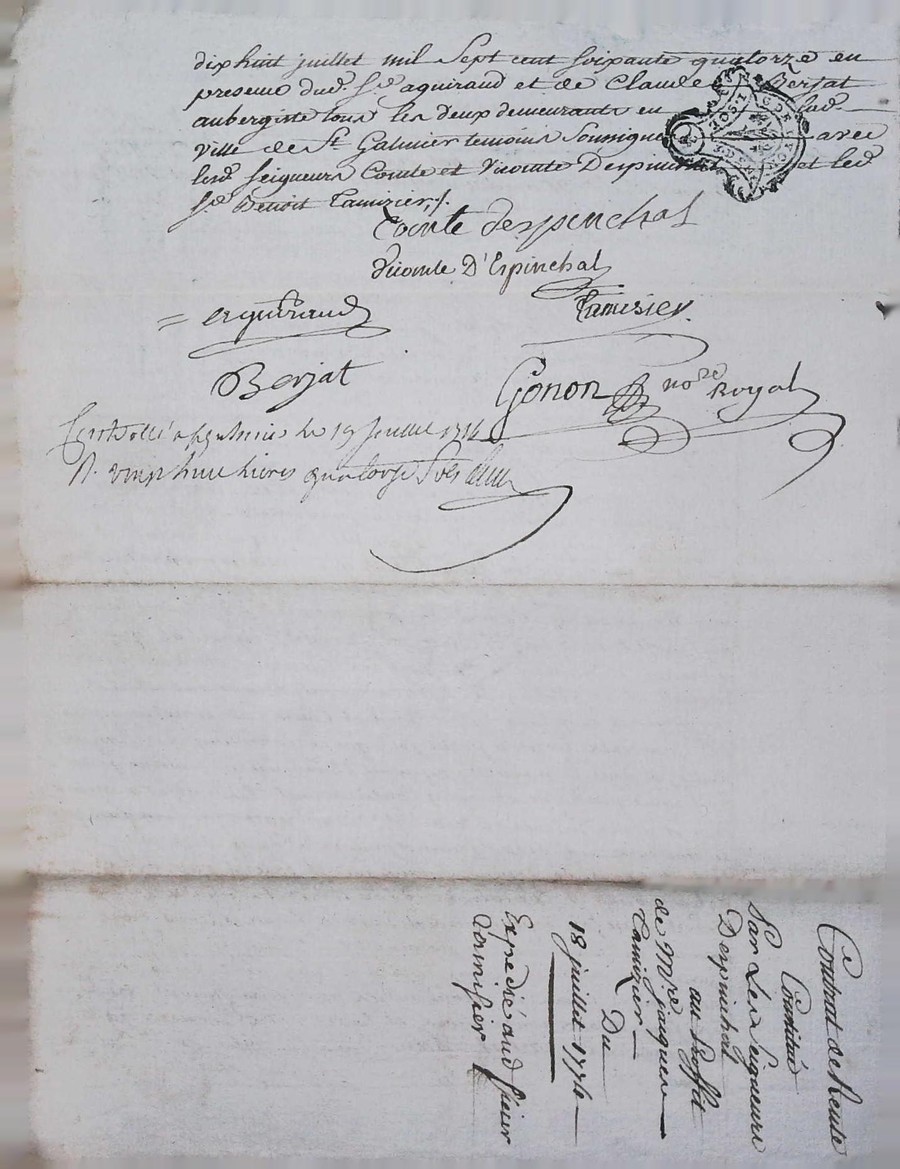 dix huit juillet mil Sept cent soixante quatorze en
presence dud. Sr. aguiraud et de Claude Berjat
aubergiste tous les deux demeurants en lad.
ville de St Galmier temoins Soussignés avec
lesd seigneurs Comte et Vicomte Despinchal et led
Sr. Benoit Tamizier,/.
Comte despinchal
Vicomte D'Espinchal
aguiraud Tamisier
Berjat Gonon nore Royal
Controllé a St galmier le 19 Juillet 1774
R. vingt huit livres quatorze Sols
Contrat de Rente
Constitué
Par Les Seigneurs
Despinchal
au Proffit
de Mre jaques
Tamizier
Du
18 juillet 1774
Expedié aud sieur
Tamisier